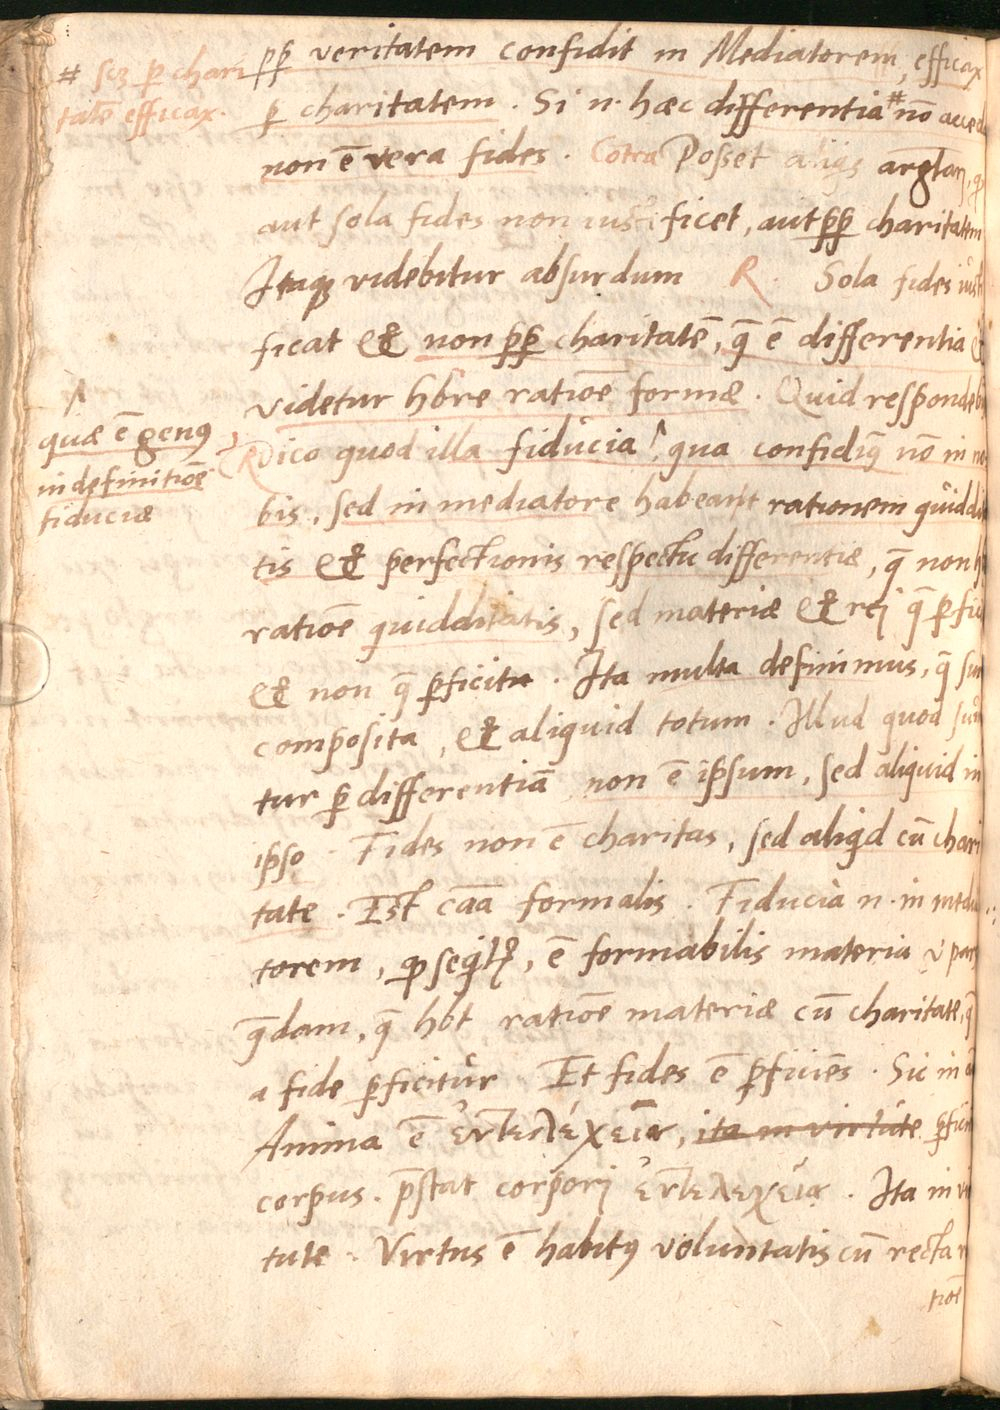 # scz p chari
tatē efficax.
pp veritatem confidit in Mediatorem, efficax
p charitatem. Si n. hæc differentia # nō acced
non ē vera fides. Cōtra Posset aliqs
aut sola fides non iustificet, aut pp charitatem
Itaqȝ videbitur absurdum R. Sola fides iust
ficat & non pp charitatē, q̄ ē differentia &
videtur hb̄re ratiōē formæ. Quid respondeb
quæ ē genꝰ
in definitiōē
fiduciæ
R Dico quod illa fiducia, qua confidiq̄ nō in no
bis, sed in mediatore habeant rationem quiddi
tis & perfectionis respectu differentiæ, q̄ non
ratiōē quidditatis, sed materiæ & rej q̄ pfici
& non q̄ pficitu. Ita multa definimus, q̄ sun
composita, & aliquid totum. Illud quod sum
tur p differentiā non ē ipsum, sed aliquid in
ipso. Fides non ē charitas, sed aliqid cū chari
tate. Est cāā formalis. Fiducia n. in media
torem, ē formabilis materia
q̄dam, q̄ hbt ratiōē materiæ cū charitate, q̄
a fide pficitur Et fides ē pficiēs. Sic in
Anima ē ἐντελέχεια, ita in virtute pficit
corpus. p̄stat corporj ἐντελεχεια. Ita in vi
tute. Virtus ē habitꝰ voluntatis cū recta r
tiōē